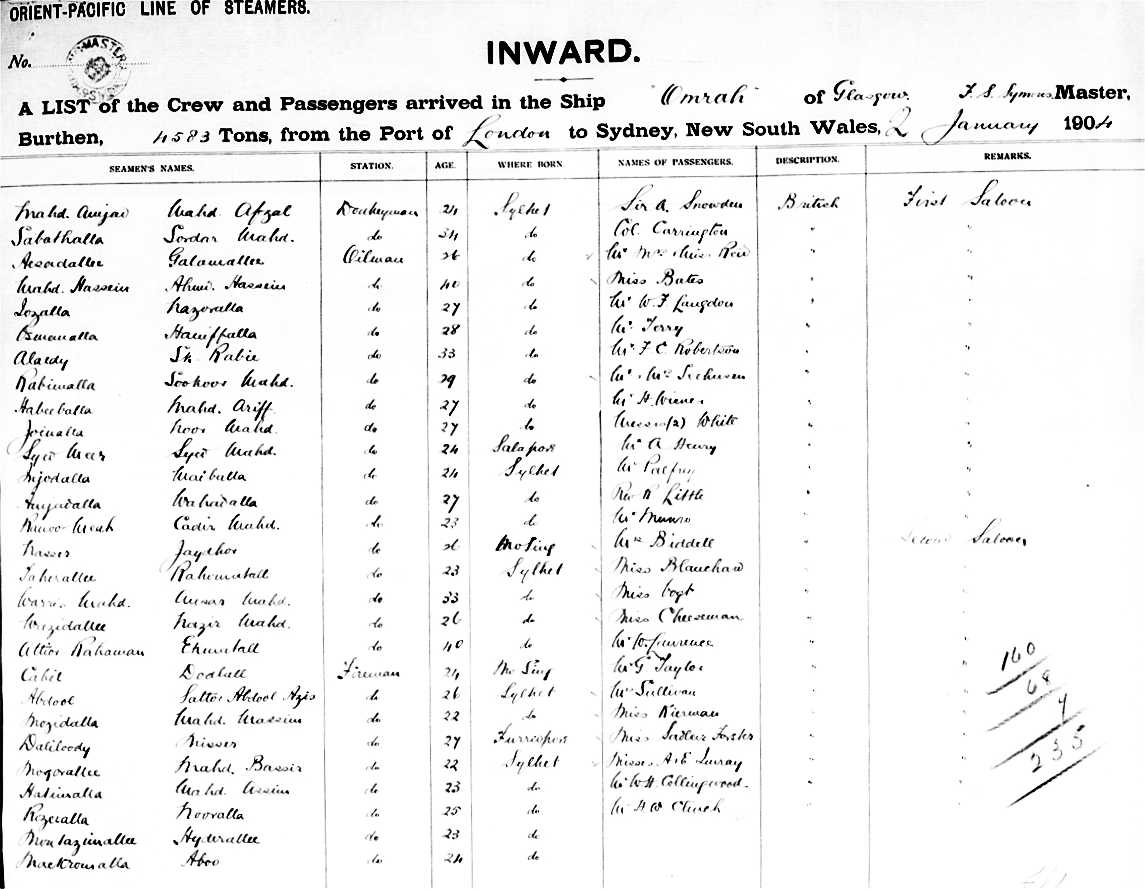 ORIENT-PACIFIC LINE OF STEAMERS.
No.
INWARD.
A LIST of the Crew and Passengers arrived in the Ship "Omrah" of Glasgow F. S. Symons Master,
Burthen, 4583 Tons, from the Port of London to Sydney, New South Wales, 2 January 1904
SEAMEN'S NAMES. STATION. AGE. WHERE BORN NAMES OF PASSENGERS. DESCRIPTION. REMARKS.
Mahd. Mahd. Afzal Donkeyman 24 Sylhet Sir A. Snowden British First Saloon
Sabathalla Sordar Mahd. do 34 do Col. Carrington " "
Galamallee Oilman 26 do Mr Mrs Miss " "
Mahd. Hassein Ahmd. Hassein do 40 do Miss Bates " "
Nazoralla do 27 do Mr W. F. Langdon " "
Osmanalla Haniffalla do 28 do Mr Terry " "
Sk. Rabie do 33 do Mr F. C. Robertson " "
Rabimalla Sookoor Mahd. do 29 do Mr Mrs " "
Habeeballa Mahd. Ariff do 27 do Mr H. Wiener " "
Joinalla Noor Mahd. do 27 do Messrs (2) White " "
Syed Meer Syed Mahd. do 24 Mr A Henry " "
Maiballa do 24 Sylhet Mr Palfry " "
Wahadalla do 27 do Rev R. Little " "
Meah Cadir Mahd. do 23 do Mr Munro " "
Nasser do 26 Mo Sing Mrs Biddell " Second Saloon
Taherallee Rahomutall do 23 Sylhet Miss Blanchard " "
Mahd. Ansar Mahd. do 33 do Miss Vogt " "
Wazidallee Nazir Mahd. do 26 do Miss Cheeseman " "
Attior Rahaman do 40 do Mr W. Lawrence " "
Fireman 24 Mo Sing Mr G Taylor " "
Abdool Sattor Abdool Azis do 26 Sylhet Mr Sullivan " "
Mozidalla Mahd. do 22 do Miss Kiernan " "
Misser do 27 Furreepore Miss Sadleir Forster " "
Mogorallee Mahd. Bassir do 22 Sylhet Misses A & E " "
Hatimalla Mahd. Assim do 23 do Mr W H Collingwood " "
Nooralla do 25 do Mr A W Church " "
Montazimallee Hyderallee do 23 do
Mackromalla Aboo do 24 do
160
68
7
235